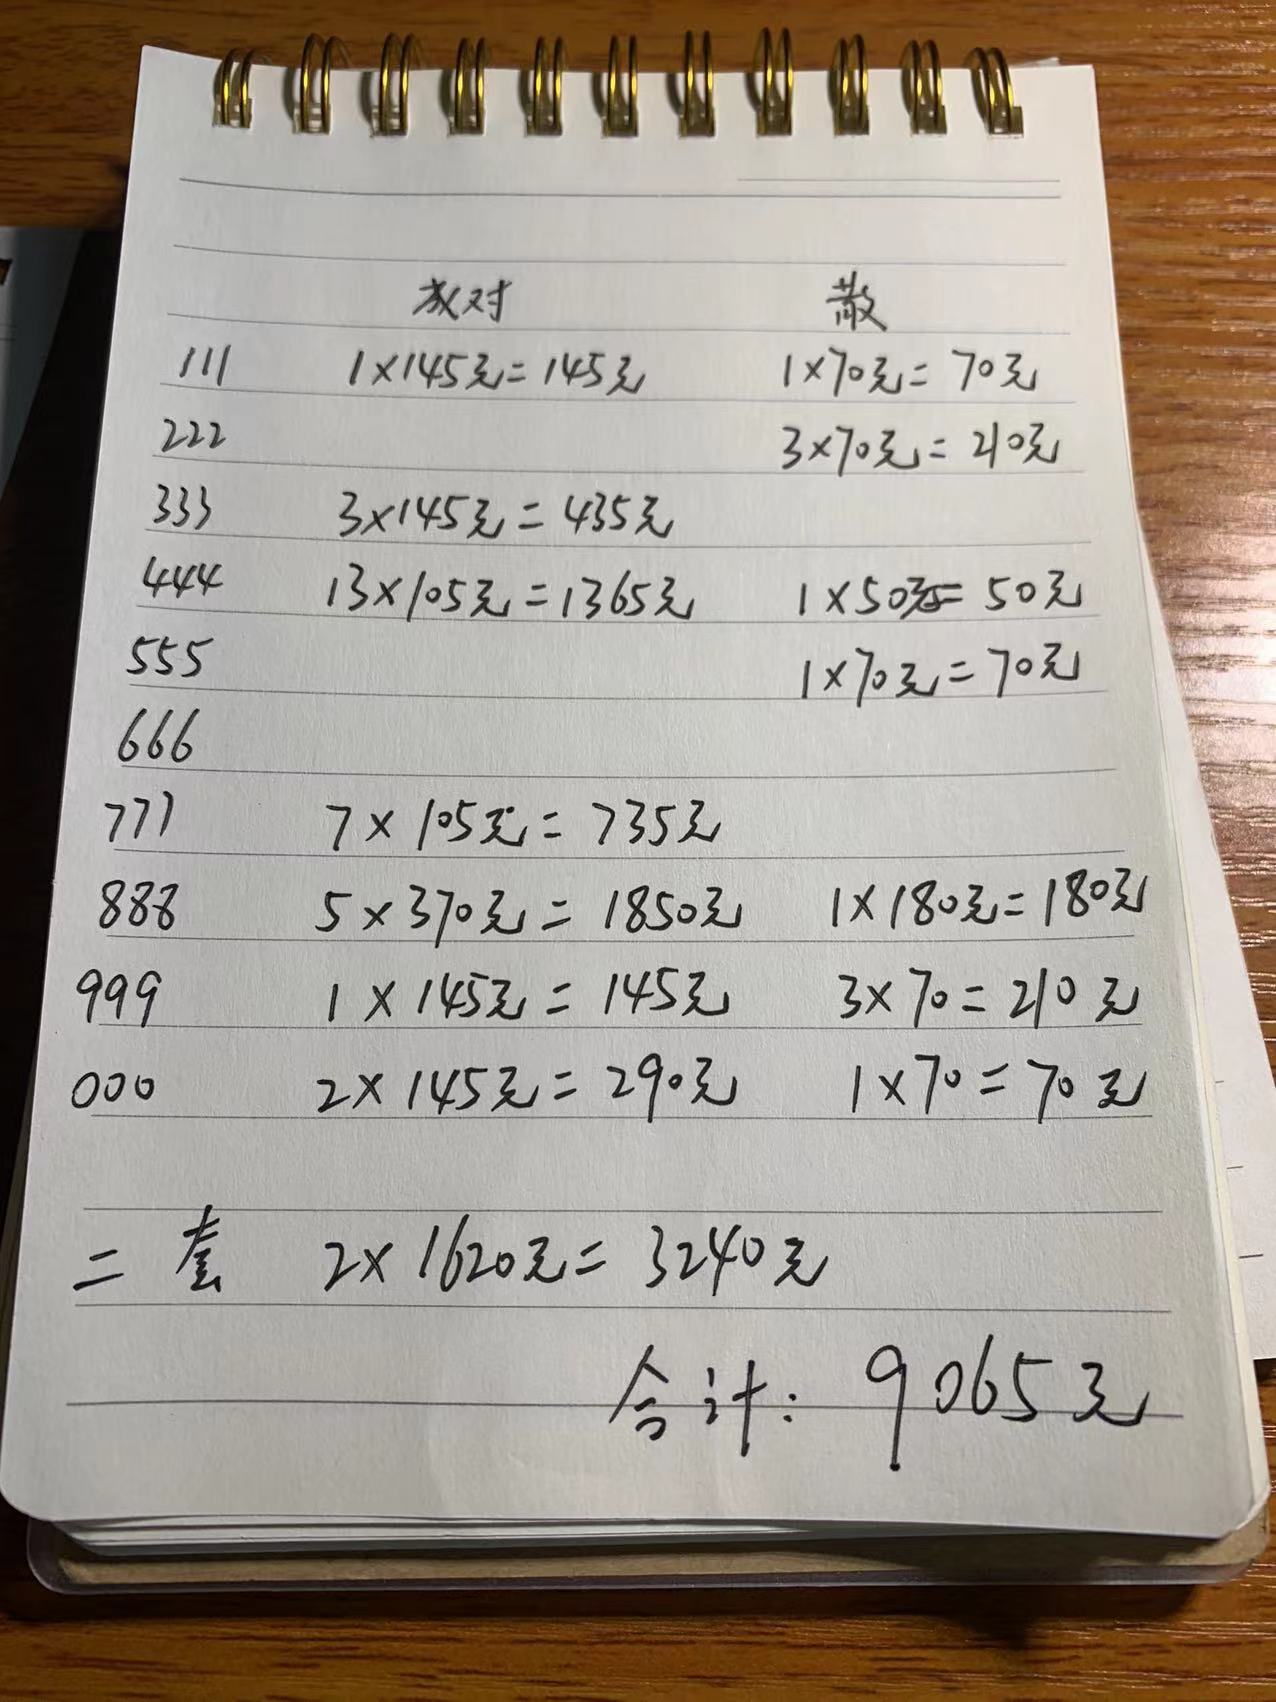 成对 散
111 1×145元=145元 1×70元=70元
222 3×70元=210元
333 3×145元=435元
444 13×105元=1365元 1×50元=50元
555 1×70元=70元
666
777 7×105元=735元
888 5×370元=1850元 1×180元=180元
999 1×145元=145元 3×70=210元
000 2×145元=290元 1×70=70元
二套 2×1620元=3240元
合计：9065元